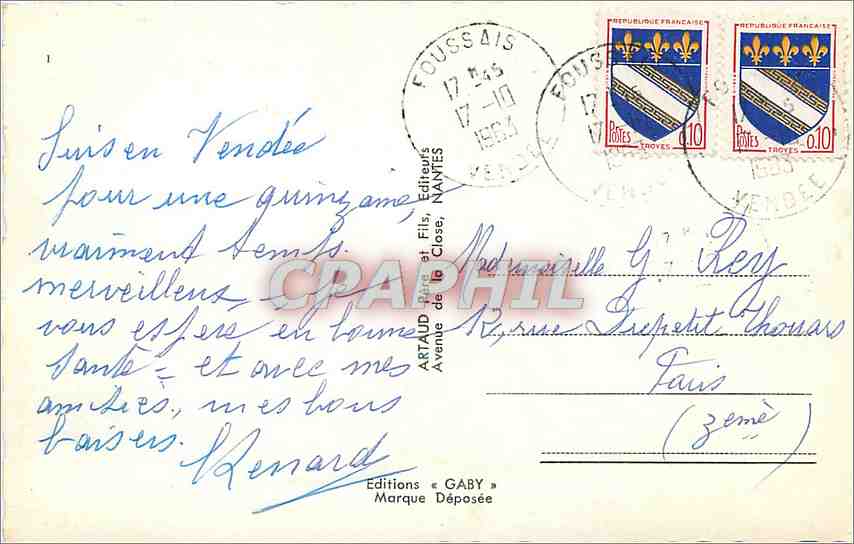 1
FOUSSAIS
17 H45
17-10
1963
VENDEE
REPUBLIQUE FRANCAISE
POSTES 0,10
TROYES
REPUBLIQUE FRANCAISE
POSTES 0,10
TROYES
VENDEE
Suis en Vendée
pour une quinzaine,
vraiment temps
merveilleux, je
vous espère en bonne
santé = et avec mes
amitiés, mes bons
baisers.
Renard
ARTAUD Père et Fils, Editeurs
Avenue de la Close, NANTES
Mademoiselle G. Rey
12, rue Dupetit Thouars
Paris
(3eme)
CPAPHIL
Editions « GABY »
Marque Déposée